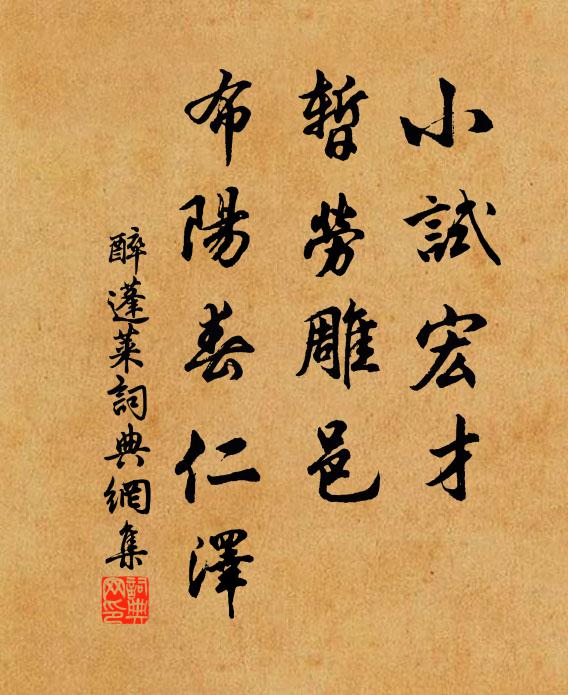 小試宏才
暫勞雕邑
布陽春仁澤
醉蓬萊詞典網集
詞典
网印